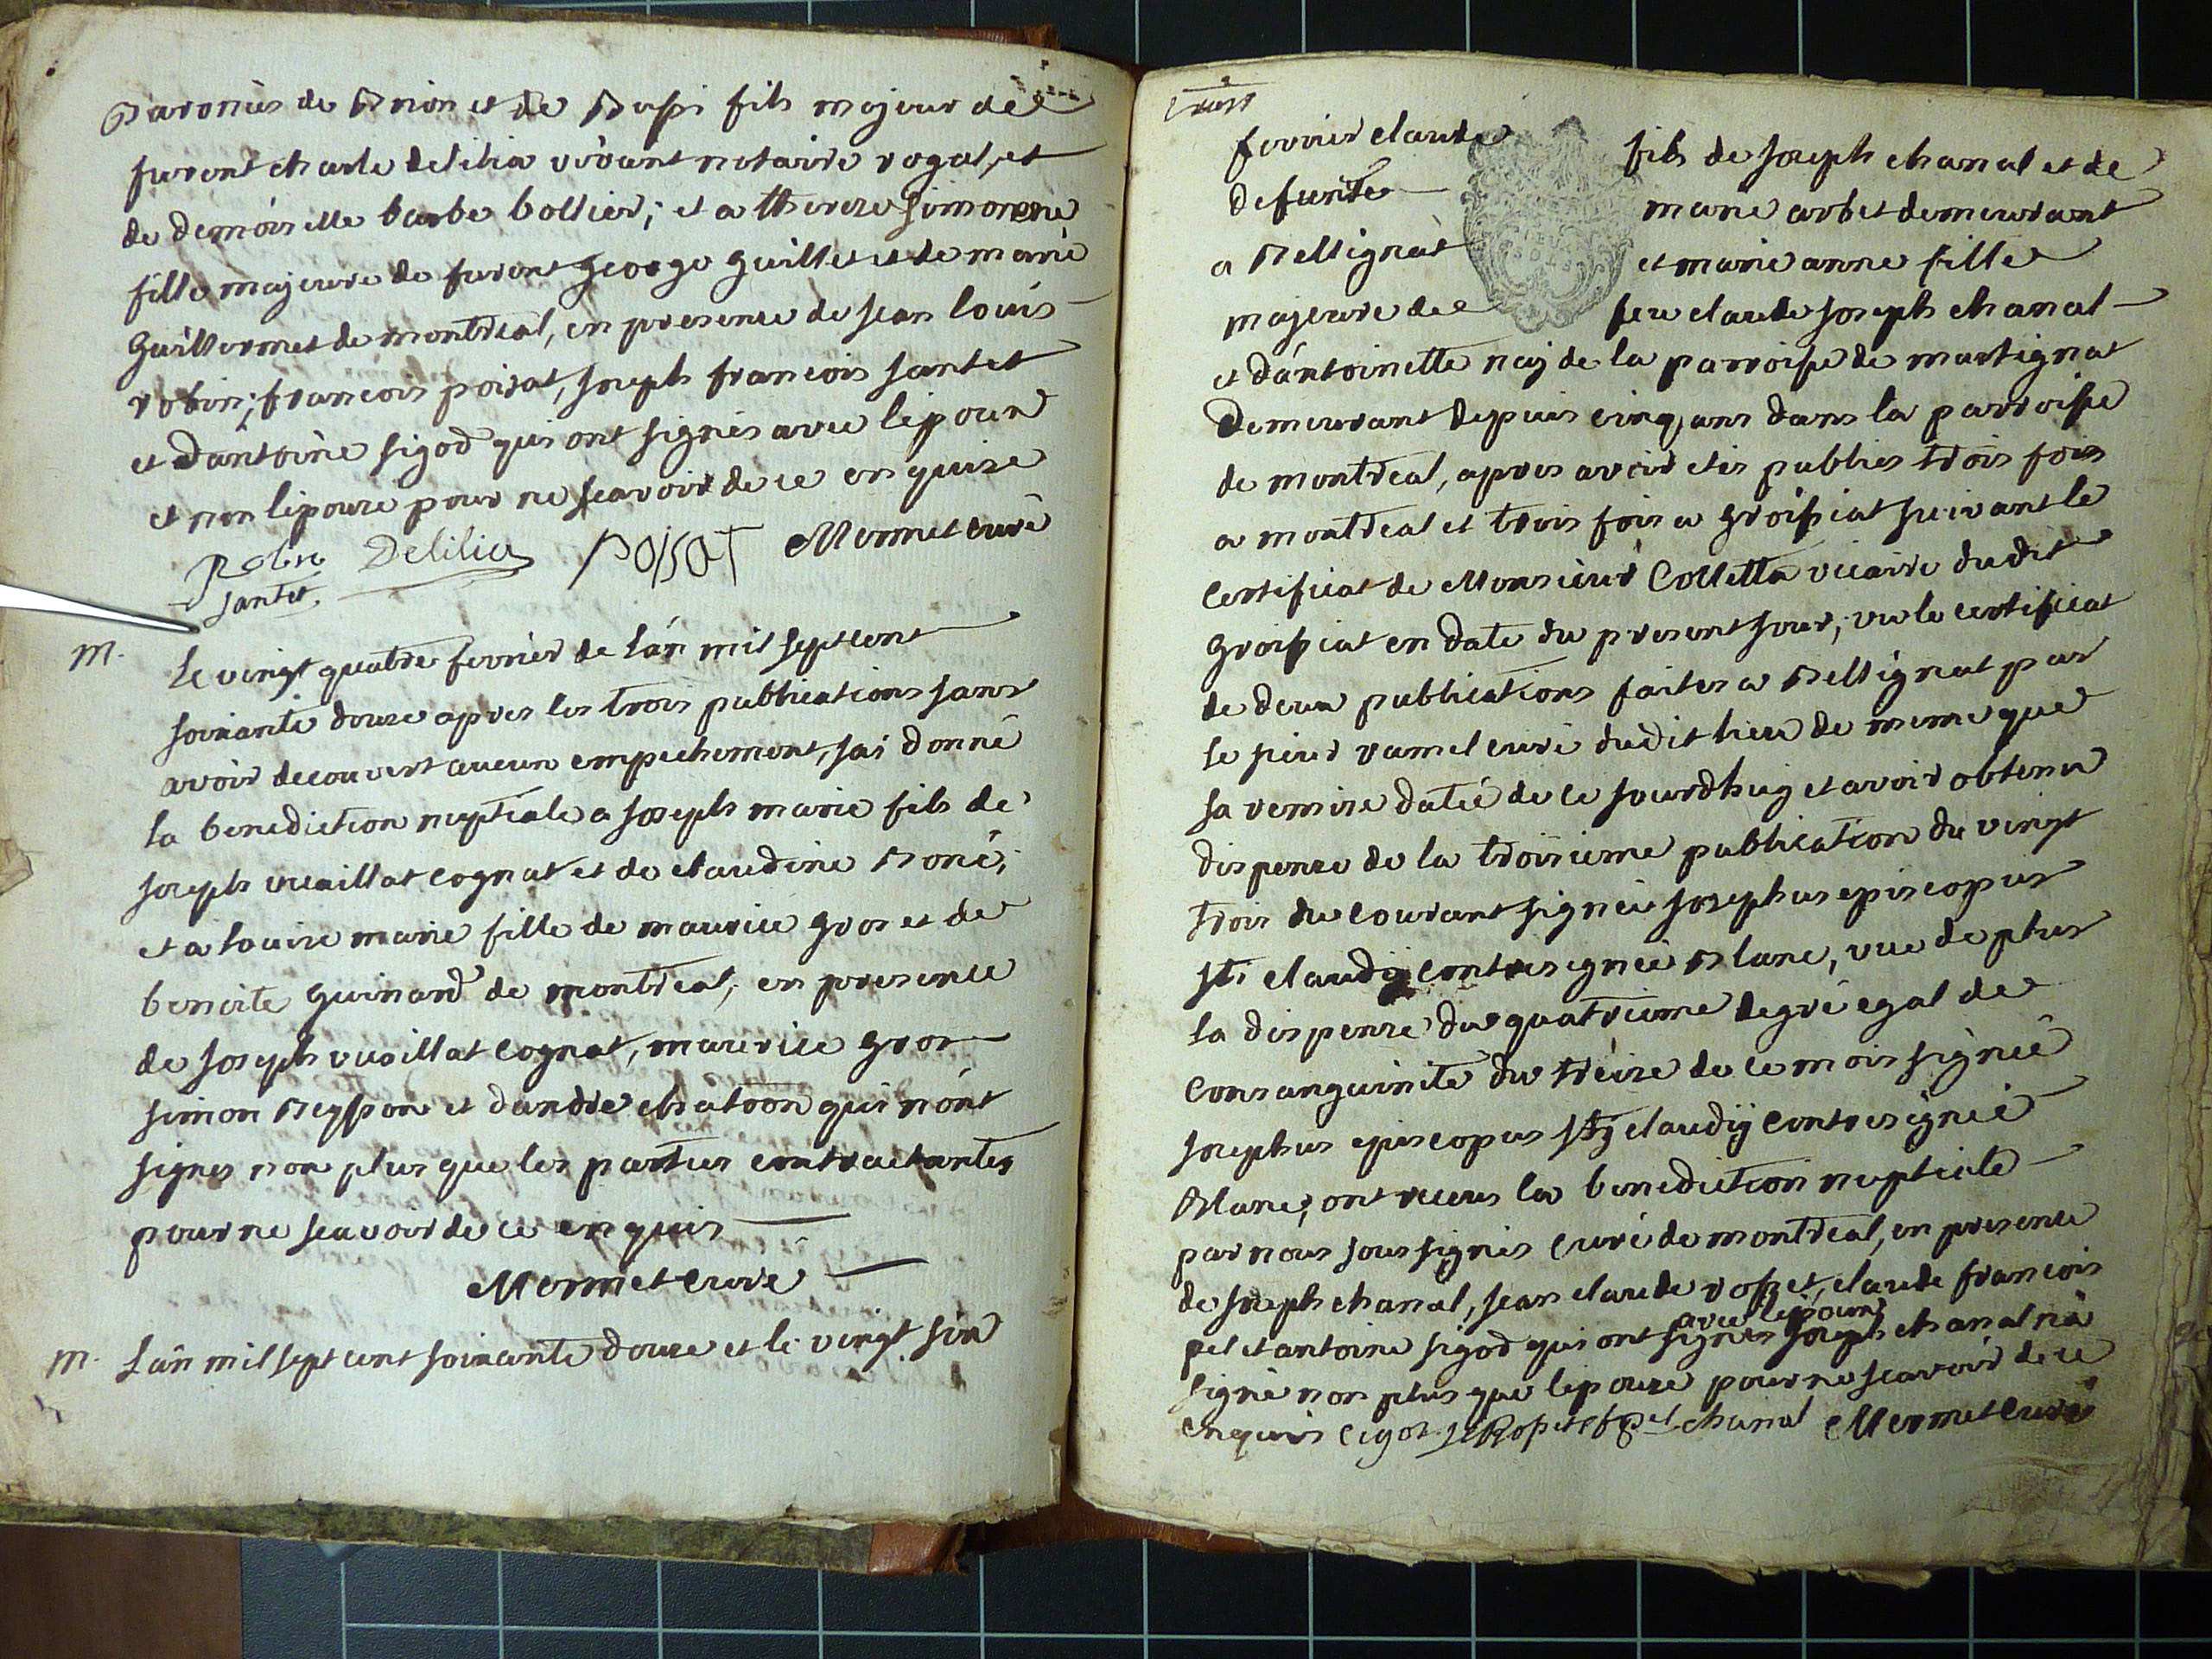 Baronies de Brion et de Bussi fils majeur de
furent charle delilia vivant notaire royal, et
de demoiselle barbe bollier; et a therese simonene
fille majeure de furent george guillet et de marie
guillermet de montreal, en presence de jean louis
robin; francois poisat, joseph francois jantet
et dántoine sigod qui ont signés avec lépoux
et non lépouse pour ne scavoir de ce enquise
Robin Delilia poisat Mermet curé
jantet
m. Le vingt quatre fevrier de lán mil sept cent
soixante douze apres les trois publications sans
avoir decouvert aucun empechement, jai donné
la benediction nuptiale a joseph marie fils de
joseph vuaillat cognat et de claudine Boné;
et a louise marie fille de maurice gros et de
benoite guinard de montreal, en presence
de joseph vuaillat cognat, maurice gros
simon Beysson et dandre chatron qui nónt
signés non plus que les parties contractantes
pour ne scavoir de ce enquis
Mermet curé
m. Lán mil sept cent soixante douze et le vingt six
fevrier claude fils de joseph chanal et de
defunte marie arbet demeurant
a Bellignat et marie anne fille
majeure de feu claude joseph chanal
et dántoinette naj de la parroisse de martignat
demeurant depuis cinq ans dans la parroisse
de montreal, apres avoir etés publiés trois fois
a montreal et trois fois a groissiat suivant le
certificat de Monsieur Colletta vicaire dudit
groissiat en date du present jour; vu le certificat
de deux publications faites a Bellignat par
le sieur vamel curé dudit lieu de meme que
sa remise datée de ce jourdhuy et avoir obtenu
dispense de la troisieme publication du vingt
trois du courant signée josephus episcopus
sti claudij contresignée Blanc, vue de plus
la dispense du quatrieme degré egal de
consanguinité du treize de ce mois signée
josephus episcopus stj claudij contresignée
Blanc; ont recus la benediction nuptiale
par nous soussignés curé de montreal, en presence
de joseph chanal, jean claude rosset, claude francois
avec lépoux
pel et antoine sigod qui ont signés joseph chanal ná
signé non plus que lépouse pour ne scavoir de ce
enquis cigod jc Rosset cf pel chanal Mermet curé